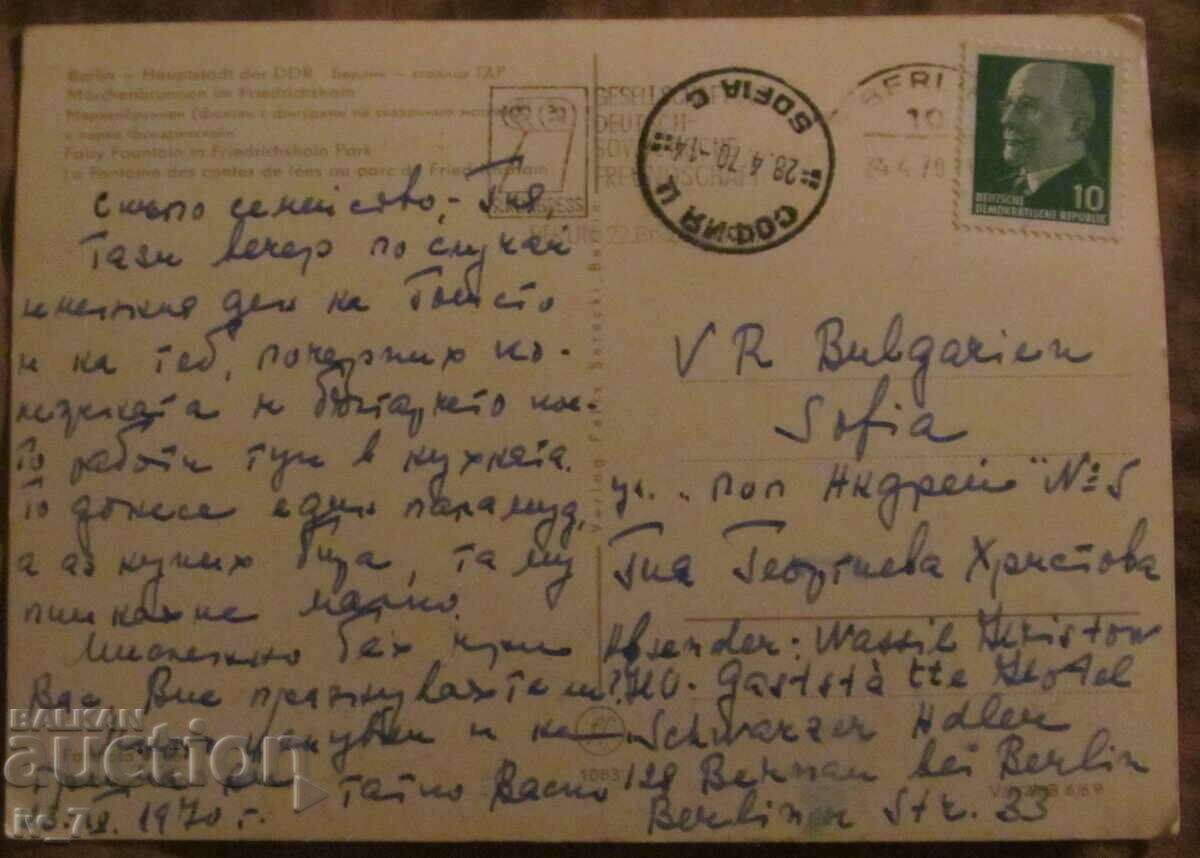 Berlin – Hauptstadt der DDR Берлин – столица ГДР
Märchenbrunnen im Friedrichshain
в парке Фридрихсхайн
Fairy Fountain in Friedrichshain Park
La Fontaine des contes de fées au parc de Friedrichshain
GESELLSCHAFT
DEUTSCH-
SOWJETISCHE
FREUNDSCHAFT
9. KONGRESS
BERLIN 22.
СОФИЯ Ц SOFIA C
28.4.70-14
BERLIN
10
24.4.70
10
DEUTSCHE
DEMOKRATISCHE REPUBLIK
Скъпо семейство, Гия,
Тази вечер по случай
именния ден на Гошето
и на теб, почерпих
и българчето кое-
то работи тук в кухнята.
То донесе един
а аз купих бира, та му
пийнахме малко.
Мислено бях при
Вас. Вие празнувахте ли?
Много целувки и на
татко Васко
1970 г.
V R Bulgarien
Sofia
ул. „Поп Андрей" № 5
Гиа Георгиева Христова
Absender: Wassil Hristow
HO-Gaststätte Hotel
Schwarzer Adler
128 Bernau bei Berlin
Berliner Str. 33
Verlag Felix Setecki, Berlin
1083
6/69
BALKAN
auction
iv_7